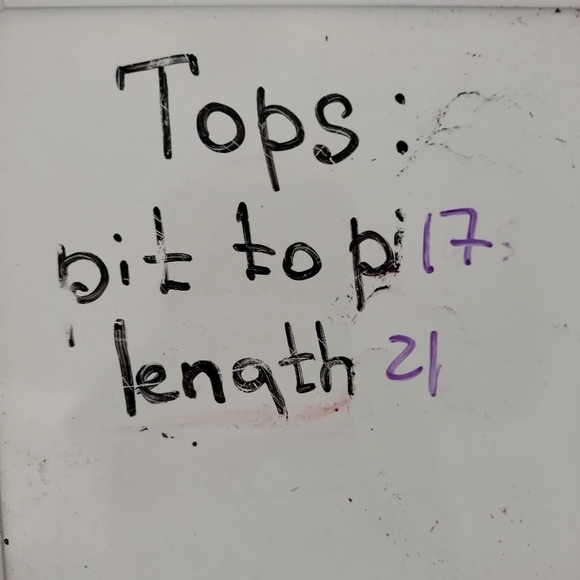 Tops:
pit to pi 17
length 21